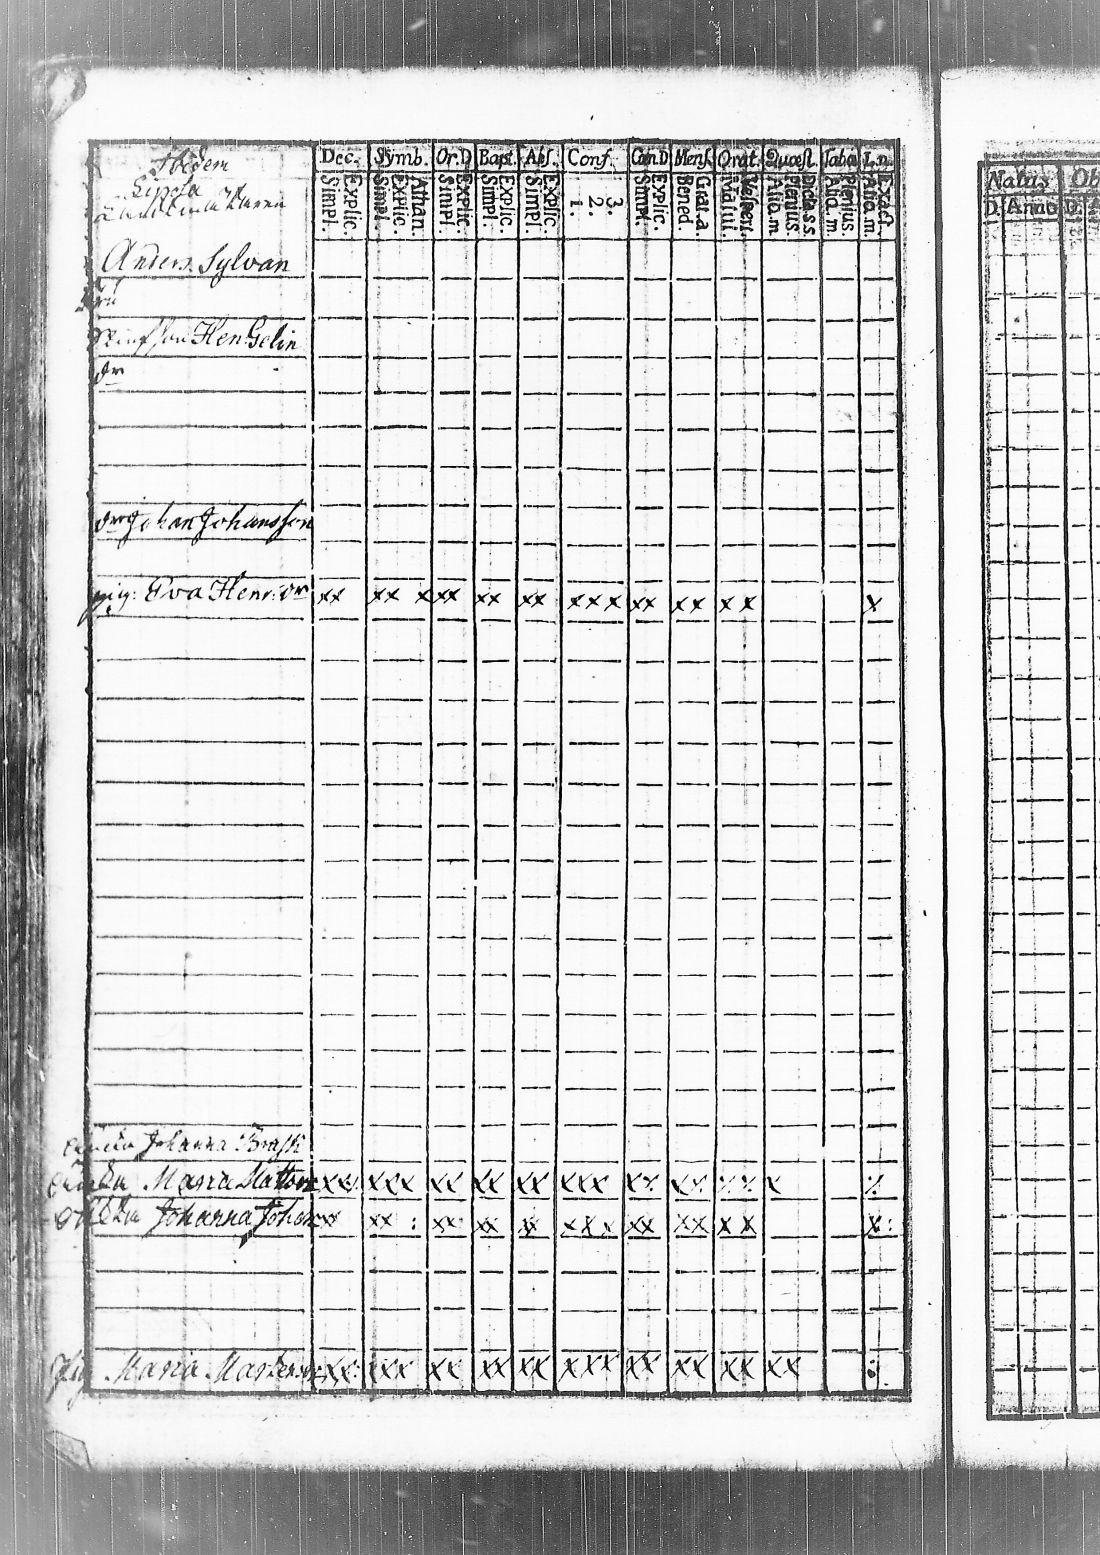 Ibidem Dec. Symb. Or.D Bapt. Abs. Conf. Cœn.D Mens. Orat. Quæst. Taba L.n.
Simpl. Explic. Simpl. Explic. Athan. Simpl. Explic. Simpl. Explic. Simpl. Explic. 1. 2. 3. Simpl. Explic. Bened. Grat.a. Matut. Vespert. Aliq.m Plenius Dicta s.s. Aliq.m Plenius Aliq.m Exact.
Natus Ob
D. Anno D. A
Anders Sylvan
Hen Gelin
dr
Johan Johansson
pig: Eva Henr: dr xx xx x xx xx xx xxx xx xx xx x
Johanna Brask
Maria Matt xx xxx xx xx xx xxx xx xx xx x x
Johanna Johan xx xx : xx xx xx xxx xx xx xx x:
Pig Maria xx xxx xx xx xx xxx xx xx xx xx